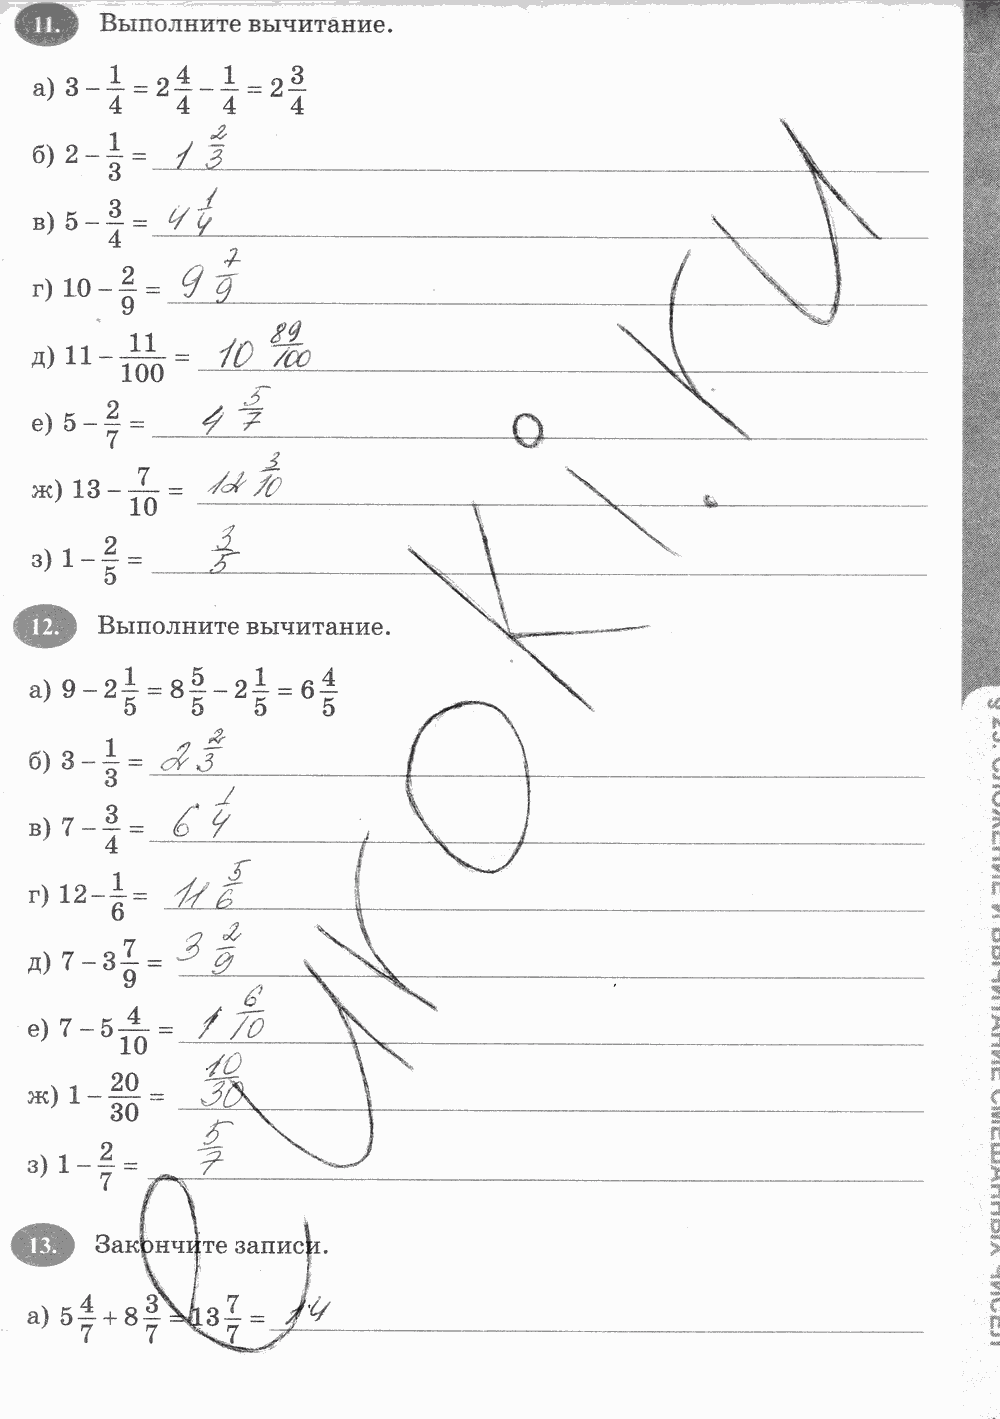 11. Выполните вычитание.
а) 3 − 1/4 = 2 4/4 − 1/4 = 2 3/4
б) 2 − 1/3 = 1 2/3
в) 5 − 3/4 = 4 1/4
г) 10 − 2/9 = 9 7/9
д) 11 − 11/100 = 10 89/100
е) 5 − 2/7 = 4 5/7
ж) 13 − 7/10 = 12 3/10
з) 1 − 2/5 = 3/5
12. Выполните вычитание.
а) 9 − 2 1/5 = 8 5/5 − 2 1/5 = 6 4/5
б) 3 − 1/3 = 2 2/3
в) 7 − 3/4 = 6 1/4
г) 12 − 1/6 = 11 5/6
д) 7 − 3 7/9 = 3 2/9
е) 7 − 5 4/10 = 1 6/10
ж) 1 − 20/30 = 10/30
з) 1 − 2/7 = 5/7
13. Закончите записи.
а) 5 4/7 + 8 3/7 = 13 7/7 = 14
СЛОЖЕНИЕ И ВЫЧИТАНИЕ СМЕШАННЫХ ЧИСЕЛ